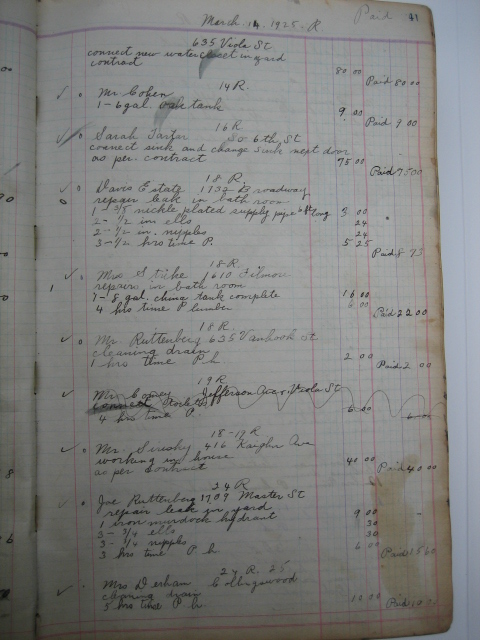 March 14, 1925 R Paid 41
635 Viola St
connect new water closet in yard
contract 80 00
Paid 80 00
14 R.
Mr Cohen
1-6 gal. oak tank 9 00
Paid 9 00
16 R
Sarah Tartor So 6th St
connect sink and change sink next door
as per. contract 75 00
Paid 75 00
18 R.
Davis Estate 1132 Broadway
repair leak in bath room
1 3/8 nickle plated supply pipe long 3 00
2- 1/2 in ells 24
2- 1/2 in. nipples 24
3-1/2 hrs time P. 5 25
Paid 8 73
18 R.
Mrs 1610 Filmore
repairs in bath room
1-8 gal. china tank complete 16 00
4 hrs time Plumber 6 00
Paid 22 00
18 R.
Mr. Ruttenberg 635 Vanhook St
cleaning drain
1 hrs time Ph 2 00
Paid 2 00
19 R
Mr Jefferson Ave. Viola St
connect
4 hrs time P. 6 00
6 00
18-19 R
Mr. 416 Kaighn Ave
working in house
as per contract 40 00
Paid 40 00
24 R
Joe Ruttenberg 1709 Master St
repair leak in yard
1 iron murdock hydrant 9 00
3- 3/4 ells 30
3- 1/4 nipples 30
3 hrs time P h 6 00
Paid 15 60
24 R. 25
Mrs Derham Collingswood
cleaning drain
5 hrs time P. h. 10 00
Paid